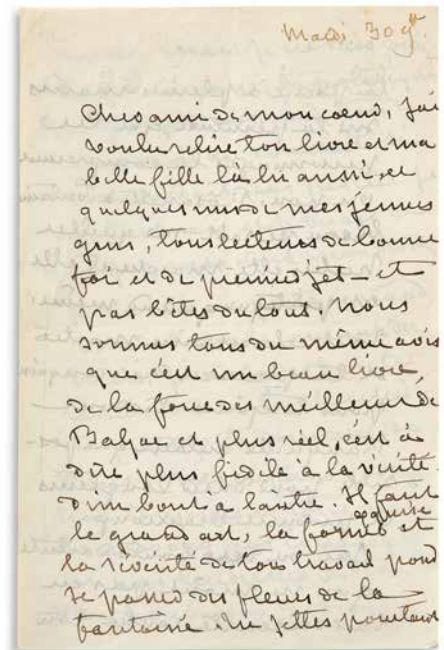 Mardi 30
Cher ami de mon cœur, j'ai
voulu relire ton livre et ma
belle fille l'a lu aussi, et
quelques uns de mes jeunes
gens, tous lecteurs de bonne
foi et de premier jet — et
pas bêtes du tout. Nous
sommes tous du même avis
que c'est un beau livre,
de la force des meilleurs de
Balzac et plus réel, c'est à
dire plus fidèle à la vérité
d'un bout à l'autre. Il faut
le grand art, la forme exquise et
la sévérité de ton travail pour
se passer des fleurs de la
fantaisie. Tu jettes pourtant